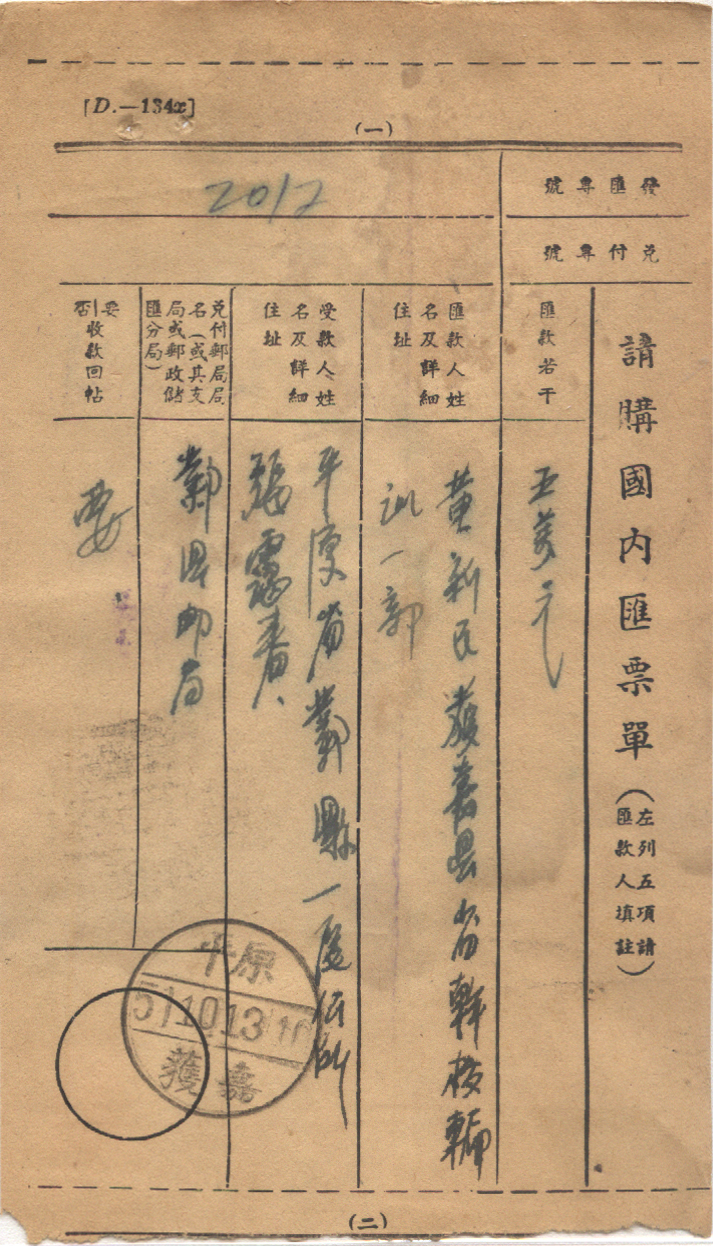 [D.—134x]
(一)
發匯專號
2012
兌付專號
請購國內匯票單
(左列五項請
匯款人填註)
匯款若干
五萬元
匯款人姓
名及詳細
住址
黃新民 獲嘉县省幹校輪
訓一部
受款人姓
名及詳細
住址
平原省鄴縣一區
張
兌付郵局局
名(或其支
局或郵政儲
匯分局)
鄴县邮局
要
引收款回帖
否
要
平原
51 10 13
獲嘉
(二)